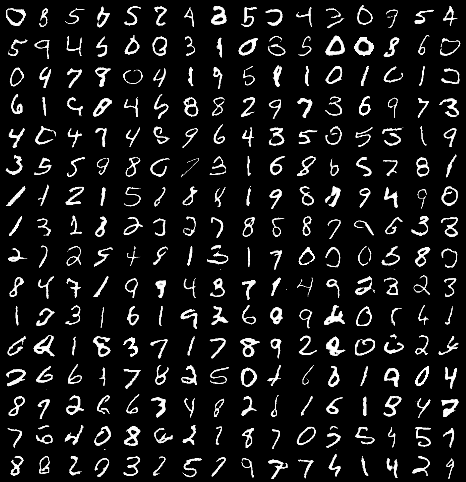 0 8 5 0 5 2 4 8 5 2 4 3 0 9 5 4
5 9 4 5 0 0 3 1 0 8 5 0 0 8 6 0
0 9 7 8 0 4 1 9 5 8 1 0 1 0 1 2
6 1 4 8 4 6 8 8 2 9 7 3 6 9 7 3
4 0 4 7 4 8 9 6 4 3 5 0 5 5 1 9
3 5 5 9 8 0 7 3 1 6 8 6 5 7 8 1
1 1 2 1 5 8 8 8 1 9 8 8 9 4 9 0
1 3 1 8 2 3 2 7 8 8 8 7 9 6 3 8
2 7 2 5 4 8 1 3 1 7 0 0 0 3 8 0
8 4 7 1 9 9 4 3 7 1 4 9 2 3 2 3
1 2 3 1 6 1 9 3 6 8 9 2 0 5 4 1
6 2 1 8 3 7 1 7 8 9 2 2 0 0 2 4
2 6 6 1 7 8 2 5 0 1 6 8 1 9 0 4
8 9 2 6 6 3 4 8 2 8 1 6 1 5 4 7
7 6 4 0 8 6 2 7 8 7 0 5 5 9 5 7
8 8 2 9 3 2 5 7 9 7 7 4 1 4 2 9